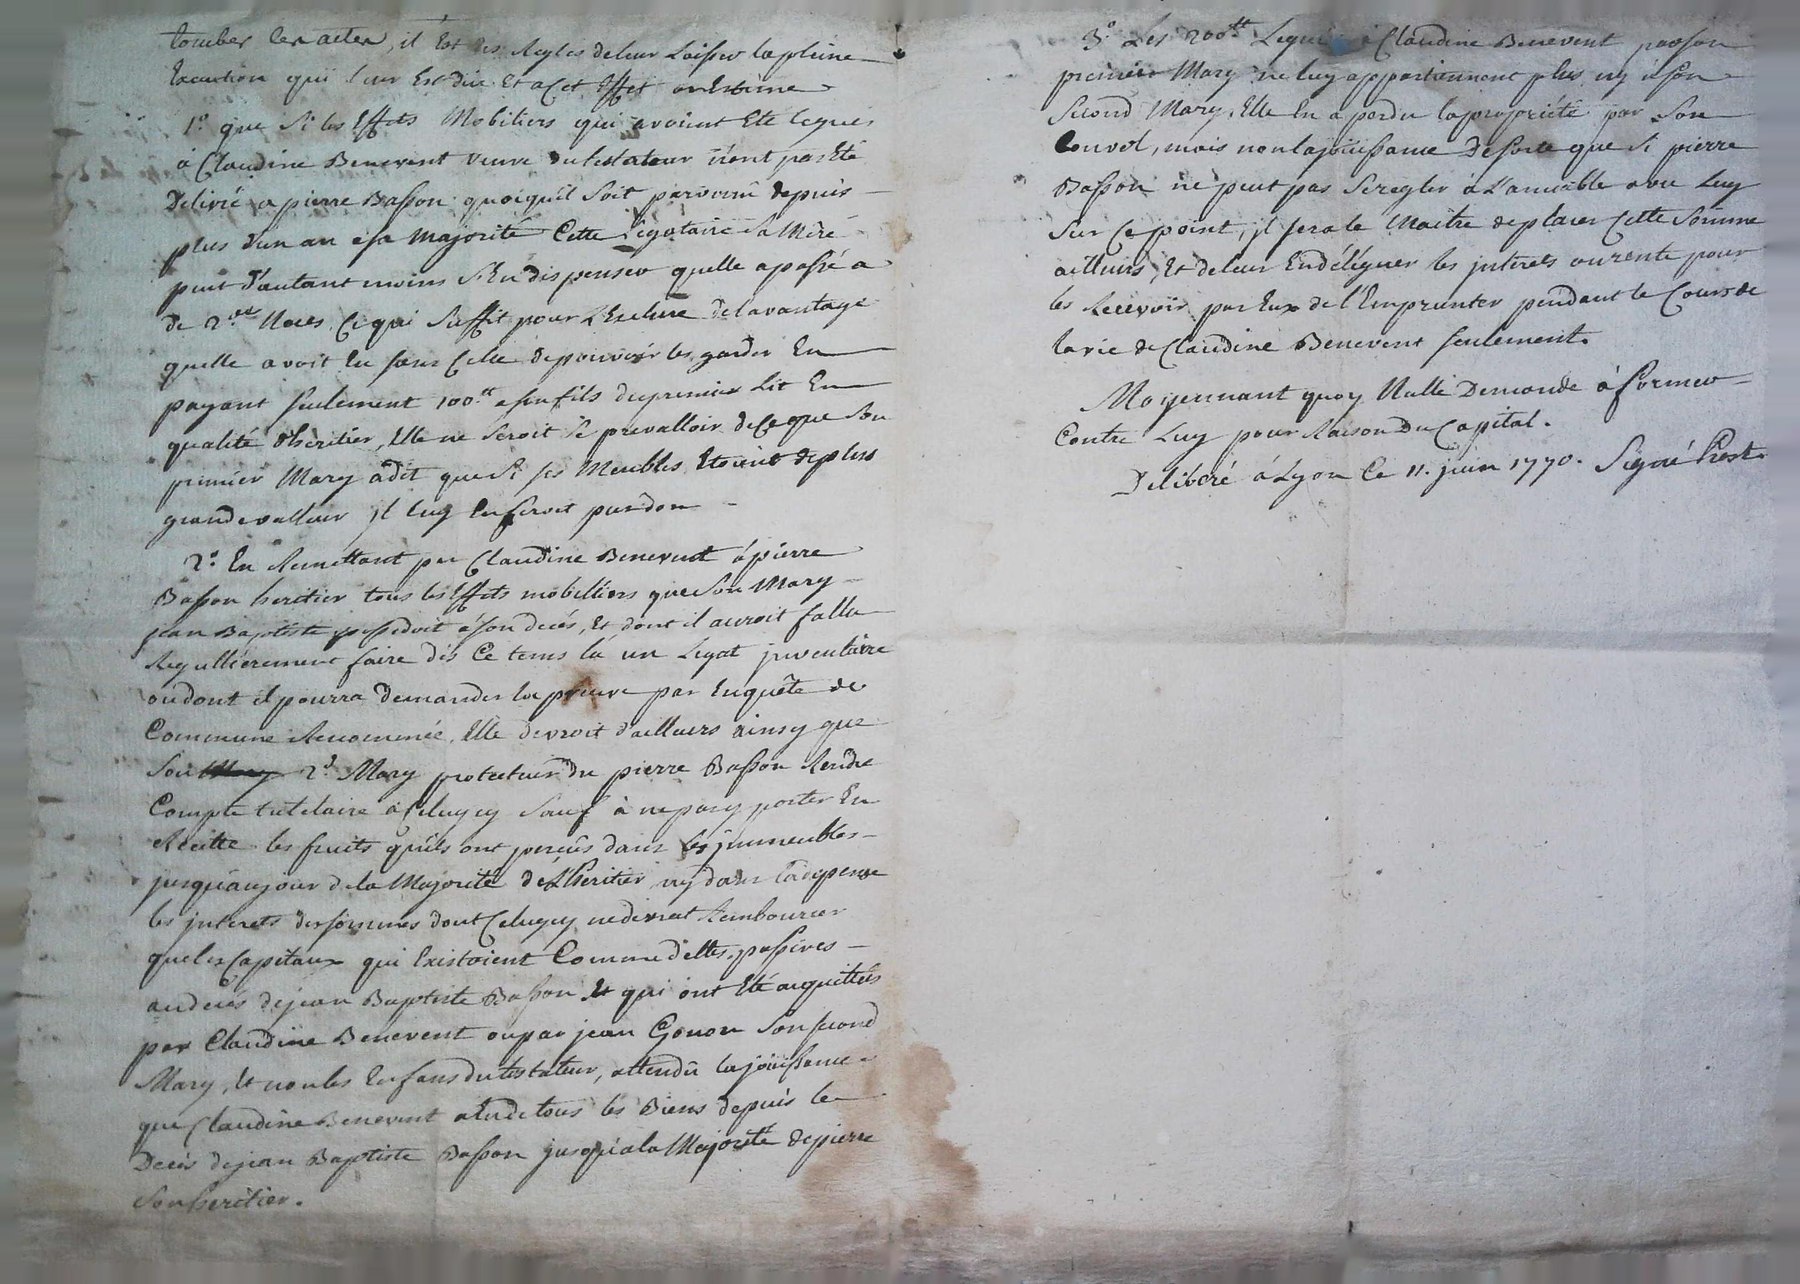 tomber les actes, il Est des Regles de leur Laisser la pleine
Execution qui leur Est düe Et a Cet Effet on Estime
1.° que Si les Effets Mobiliers qui avoient Eté legués
à Claudine Benevent veuve du testateur n'ont pas êté
Delivré a pierre Basson quoiqu'il Soit parvenû depuis
plus d'un an à sa Majorité Cette Légataire Sa Mere
peut d'autant moins S'En dispenser quelle a passé a
de 2.des Noces, Ce qui Suffit pour L'Exclure de l'avantage
quelle avoit Eu sans Celle de pouvoir les garder En
payant seulement 100.tt a son fils du premier Lit En
qualité d'heritier, Elle ne Seroit Se prevalloir de Ce que Son
premier Mary a dit que Si ses Meubles Etoient de plus
grande valleur il luy En feroit pardon
2.° En Remettant par Claudine Benevent à pierre
Basson heritier tous les Effets mobilliers que Son Mary
jean Baptiste possedoit à son decés, Et dont il auroit fallu
Regullierement faire dès Ce tems là un Legat jnventaire
ou dont il pourra demander la preuve par Enquête de
Commune Renommée, Elle devroit d'ailleurs ainsy que
Son 2.d Mary protuteur du pierre Basson Rendre
Compte tutelaire à Celuycy Sauf à ne pas y porter En
Recette les fruits qu'ils ont perçûs dans les jmmeubles
jusqu'au jour de la Majorité de L'heritier, ny dans la depense
les jnterets des sommes dont Celuycy ne devrat Rembourcer
que les Capitaux qui Existoient Comme dettes passives
au decés de jean Baptiste Basson Et qui ont Eté acquittés
par Claudine Benevent ou par jean Gonon Son second
Mary, Et non les Enfans du testateur, attendû la joüissance
que Claudine Benevent a Eu de tous les Biens depuis le
Decés de jean Baptiste Basson jusqu'a la Majorité de pierre
Son heritier.
3.° Les 200.tt Legués à Claudine Benevent par son
premier Mary ne luy appartiennent plus ny à son
Second Mary, Elle En a perdu la proprieté par Son
Convol, mais non la joüissance De sorte que Si pierre
Basson ne peut pas Se regler à L'amiable avec Luy
Sur Ce point, jl sera le Maître de placer Cette Somme
ailleurs, Et de leur En déléguer les jnterets ou rente pour
les Recevoir par Eux de l'Emprunter pendant le Cours de
la vie de Claudine Benevent seulement.
Moyennant quoy Nulle Demande à former
Contre Luy pour Raison Du Capital.
Deliberé à Lyon Ce 11. juin 1770. Signé Prost